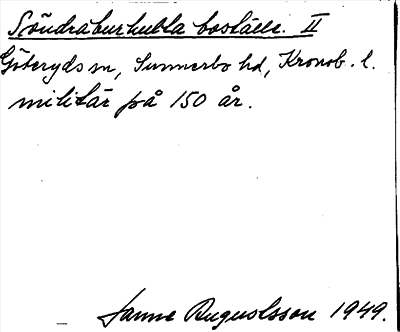 Söndraburhubla boställe. II
Göteryds sn, Sunnerbo hd, Kronob. l.
militär på 150 år.
Janne Augustsson 1949.